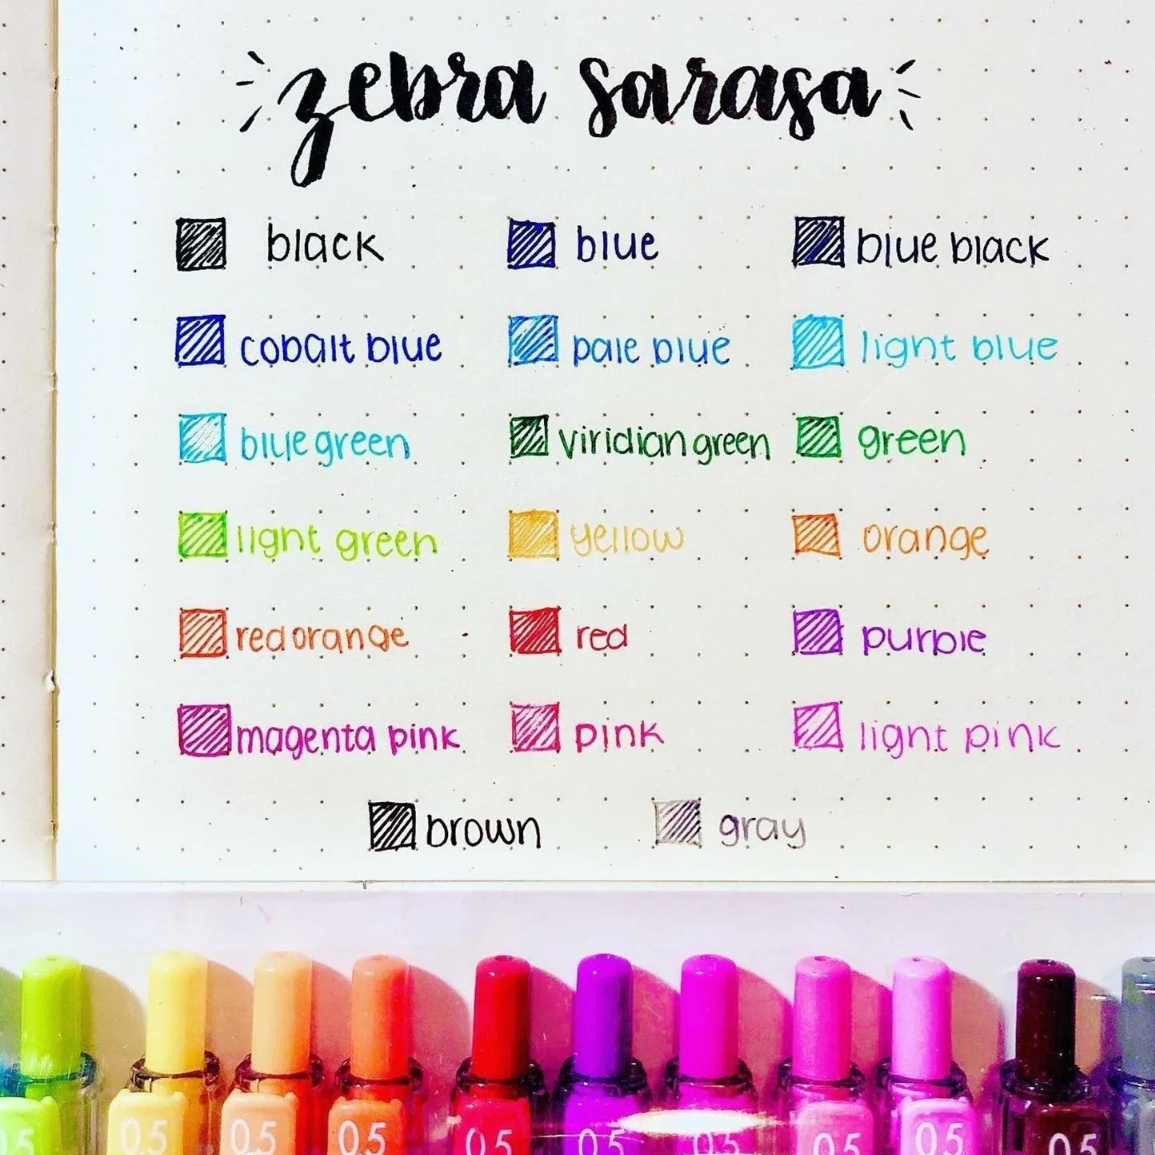 zebra sarasa
black blue blue black
cobalt blue pale blue light blue
blue green viridian green green
light green yellow orange
red orange red purple
magenta pink pink light pink
brown gray
0.5 0.5 0.5 0.5 0.5 0.5 0.5 0.5 0.5 0.5